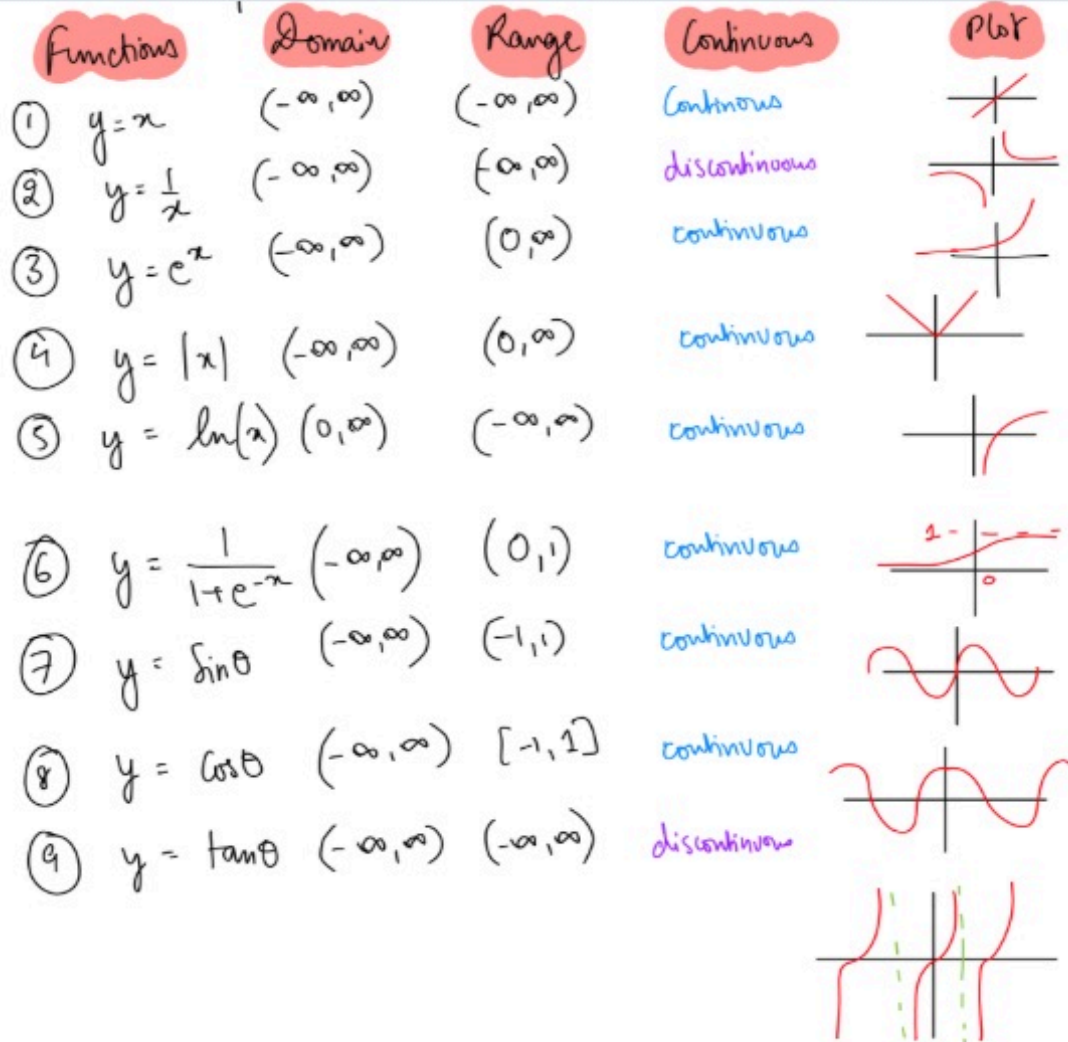 Functions Domain Range Continuous Plot
① y = x (-∞,∞) (-∞,∞) Continous
② y = 1/x (-∞,∞) (-∞,∞) discontinuous
③ y = e^x (-∞,∞) (0,∞) continuous
④ y = |x| (-∞,∞) (0,∞) continuous
⑤ y = ln(x) (0,∞) (-∞,∞) continuous
⑥ y = 1/(1+e^-x) (-∞,∞) (0,1) continuous 1 0
⑦ y = Sinθ (-∞,∞) (-1,1) continuous
⑧ y = Cosθ (-∞,∞) [-1,1] continuous
⑨ y = tanθ (-∞,∞) (-∞,∞) discontinuous